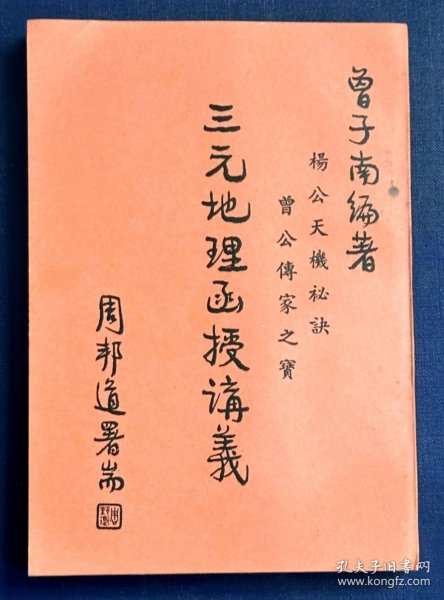 曾子南編著
楊公天機祕訣
曾公傳家之寶
三元地理函授講義
周邦道署耑
孔夫子旧书网
www.kongfz.com